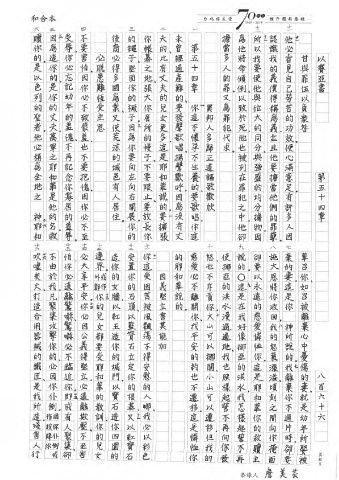 和合本
台北縣立堂
70
以賽亞書 第五十四章 八百六十六
甘與罪惡以負眾咎
他必看見自己勞苦的功效便心滿意足有許多人因
認識我的義僕得稱為義並且他要擔當他們的罪孽
所以我要使他與位大的同分與強盛的均分擄物因
為他將命傾倒以致於死他也被列在罪犯之中他卻
擔當多人的罪又為罪犯代求
異邦人多歸正道猶歡歌
第五十四章 你這不懷孕不生養的要歌唱你這
未曾經過產難的要發聲歌唱揚聲歡呼因為沒有丈
夫的比有丈夫的兒女更多這是耶和華說的要擴張
你帳幕之地張大你居所的幔子不要限止要放長你
的繩子堅固你的橛子因為你要向左向右開展你的
後裔必得多國為業又使荒涼的城邑有人居住
必脫患難恆愛主恩
不要懼怕因你必不致蒙羞也不要抱愧因你必不至
受辱你必忘記幼年的羞愧不再記念你寡居的羞辱
因為造你的是你的丈夫萬軍之耶和華是他的名救
贖你的是以色列的聖者他必稱為全地之 神耶和
華召你如召被離棄心中憂傷的妻就是幼年所娶被
棄的妻這是你 神所說的我離棄你不過片時卻要
施大恩將你收回我的怒氣漲溢頃刻之間向你掩面
卻要以永遠的慈愛憐恤你這是耶和華你的救贖主
說的○這事在我好像挪亞的洪水我怎樣起誓不再
使挪亞的洪水漫過遍地我也照樣起誓不再向你發
怒也不斥責你大山可以挪開小山可以遷移但我的
慈愛必不離開你我平安的約也不遷移這是憐恤你
的耶和華說的
因義堅立莫能加
你這受困苦被風飄蕩不得安慰的人哪我必以彩色
安置你的石頭以藍寶石立定你的根基又以紅寶石
造你的女牆以紅玉造你的城門以寶石造你四圍的
邊界你的兒女都要受耶和華的教訓你的兒女
必大享平安你必因公義得堅立必遠離欺壓不至害
怕你必遠離驚嚇驚嚇必不臨近你即或有人聚集卻
不由於我凡聚集攻擊你的必因你仆倒
吹噓炭火打造合用器械的鐵匠是我所造殘害人行